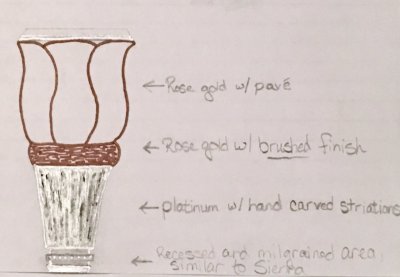 Rose gold w/ pavé
Rose gold w/ brushed finish
platinum w/ hand carved striations
Recessed and milgrained area,
similar to Sierra